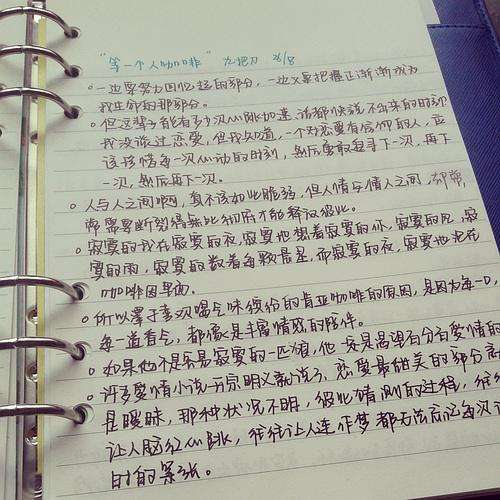 “等一个人咖啡” 九把刀 2/8
一边要努力回忆起的部分，一边又要把握正渐渐成为
我生命的那部分。
但这辈子能有多少次心跳加速，话都快说不出来的时刻
我没谈过恋爱，但我知道，一个对恋爱有信仰的人，应
该珍惜每一次心动的时刻，然后勇敢追寻下一次，再下
一次，然后再下一次。
人与人之间啊，真不该如此脆弱，但人情与情人之间，却常
常需要断割得无比彻底才能释放彼此。
寂寞的我在寂寞的夜，寂寞地想着寂寞的你，寂寞的风，寂
寞的雨，寂寞的数着每颗星星，而寂寞的夜，寂寞地泡在
咖啡因里面。
所以属于喜欢喝气味缤纷的肯亚咖啡的原因，是因为每一口，
每一道香气，都像是丰富情感的陪伴。
如果他不是容易寂寞的一匹狼，他一定是渴望百分百爱情的
许多爱情小说开宗明义就说了，恋爱最甜美的部分就
是暧昧，那种状况不明，彼此猜测的过程，往往
让人脸红心跳，往往让人连作梦都无法忘记每次
时的紧张。